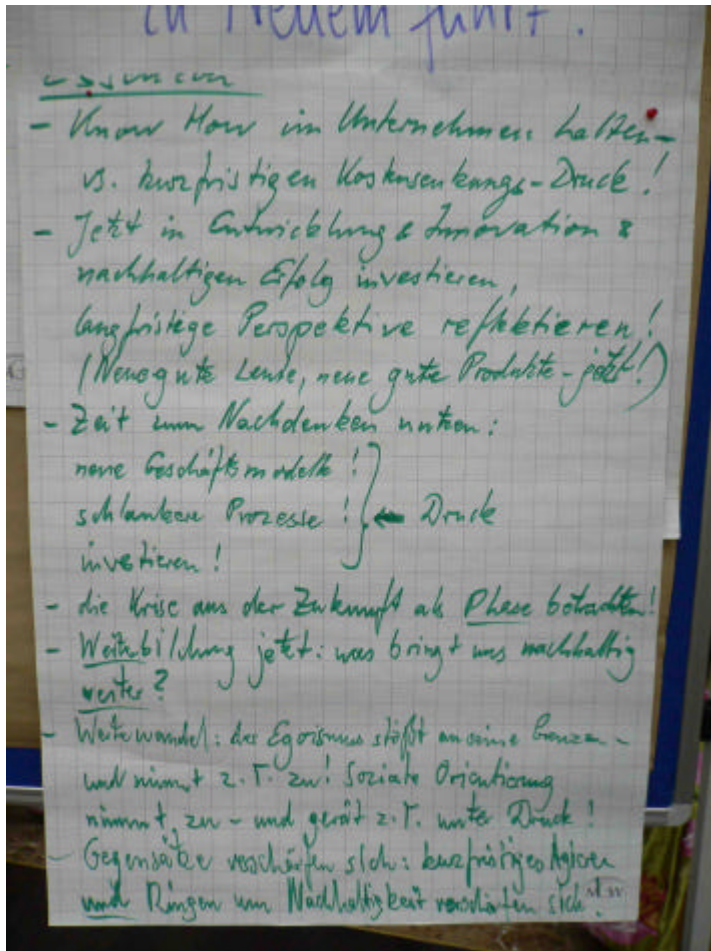 zu Neuem führt.
- Know How im Unternehmen halten -
vs. kurzfristigen Kostensenkungs-Druck!
- Jetzt in Entwicklung & Innovation &
nachhaltigen Erfolg investieren,
langfristige Perspektive reflektieren!
(Neue gute Leute, neue gute Produkte - jetzt!)
- Zeit zum Nachdenken nutzen:
neue Geschäftsmodelle!
schlankere Prozesse! ← Druck
investieren!
- die Krise aus der Zukunft als Phase betrachten!
- Weiterbildung jetzt: was bringt uns nachhaltig
weiter?
- Wertewandel: der Egoismus stößt an seine Grenzen -
und nimmt z.T. zu! Soziale Orientierung
nimmt zu - und gerät z.T. unter Druck!
- Gegensätze verschärfen sich: kurzfristiges Agieren
und Ringen um Nachhaltigkeit verschärfen sich!